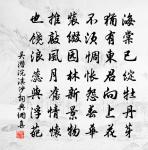 海棠已綻牡丹芽
猶有東君向上花
不須惆悵怨春賒
裝綴園林新景物
推敲風月舊情懷
也饒浪蕊與浮葩
吳潛浣溪沙詞典網書